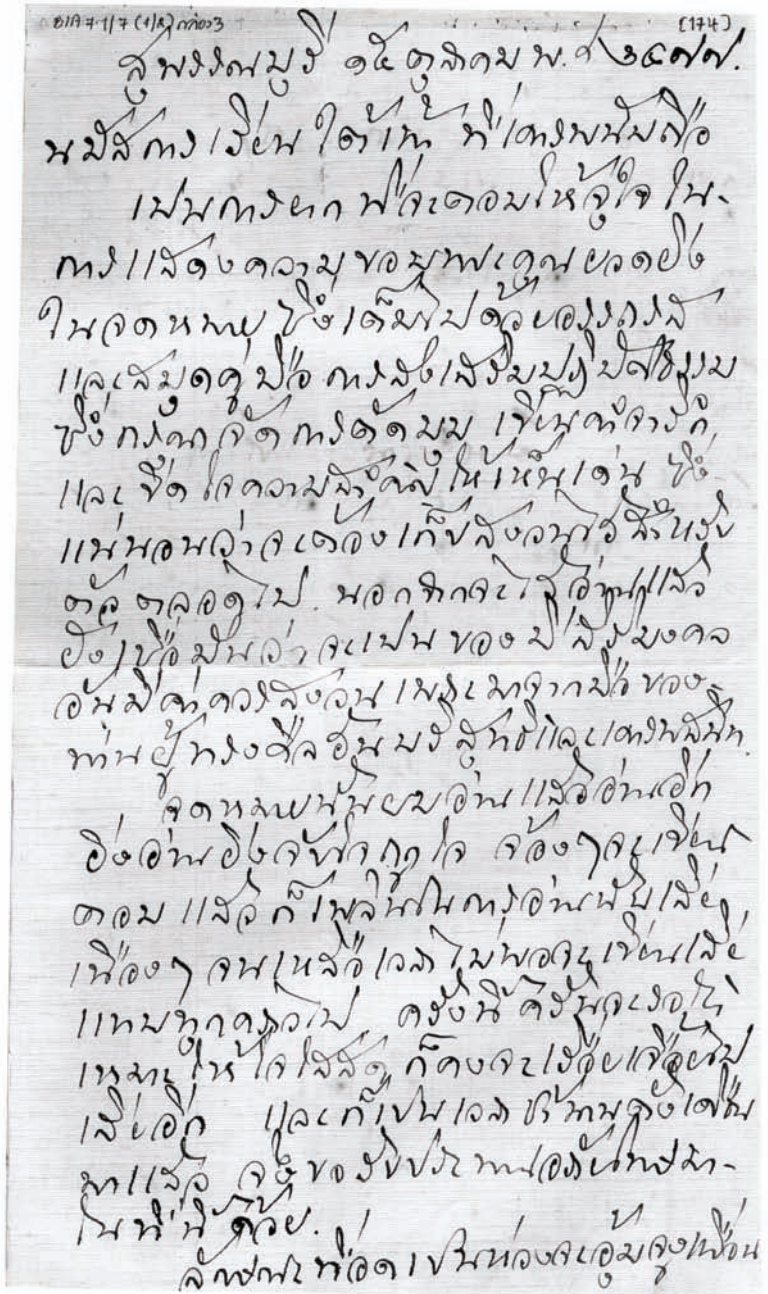 BIA 7-1/7 (1/8) กล่อง3 [174]
สุพรรณบุรี ๑๕ ตุลาคม พ.ศ ๒๔๗๗.
นมัสการ เรียน ใต้เท้า ที่เคารพนับถือ
เปนการยาก ที่จะตอบให้จุใจ ใน-
การแสดงความขอบพระคุณยอดยิ่ง
ในจดหมาย ซึ่งเต็มไปด้วยอรรถรส
และสมุดคู่มือ การส่งเสริมปฏิบัติธรรม
ซึ่งกรุณาจัดการตัดมุม เขียนคำจารึก
และขีดใจความสำคัญให้เห็นเด่น ซึ่ง
แน่นอนว่าจะต้องเก็บสงวนไว้สำหรับ
ตัวตลอดไป. นอกจากจะได้อ่านแล้ว
ยังเชื่อมั่นว่าจะเปนของมีสิริมงคล
อันมีค่าควรสงวน เพราะมาจากมือของ-
ท่านผู้ทรงศีลอันบริสุทธิ์และเคารพสนิท.
จดหมายนั้นผมอ่านแล้วอ่านอีก
ยิ่งอ่านยิ่งจับใจถูกใจ จ้องๆจะเขียน
ตอบ แล้วก็เพลินในการอ่านนั้นเสีย
เนืองๆ จนเหลือเวลาไม่พอจะเขียนเสีย
แทบทุกคราวไป ครั้งนี้ครั้นจะรอให้
เหมาะให้ใจใสสด ก็คงจะเรื่อยเจื้อยไป
เสียอีก และก็เปนเวลาช้านาน
มาแล้ว จึงขอรับประทานอภัยโทษมา-
ในที่นี้ด้วย.
ลักษณะที่อด เปนห่วงจะอุ้มจูงเพื่อน